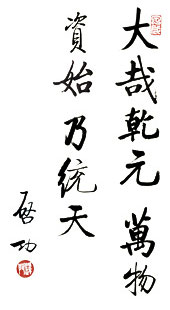 大哉乾元萬物
資始乃統天
啓功